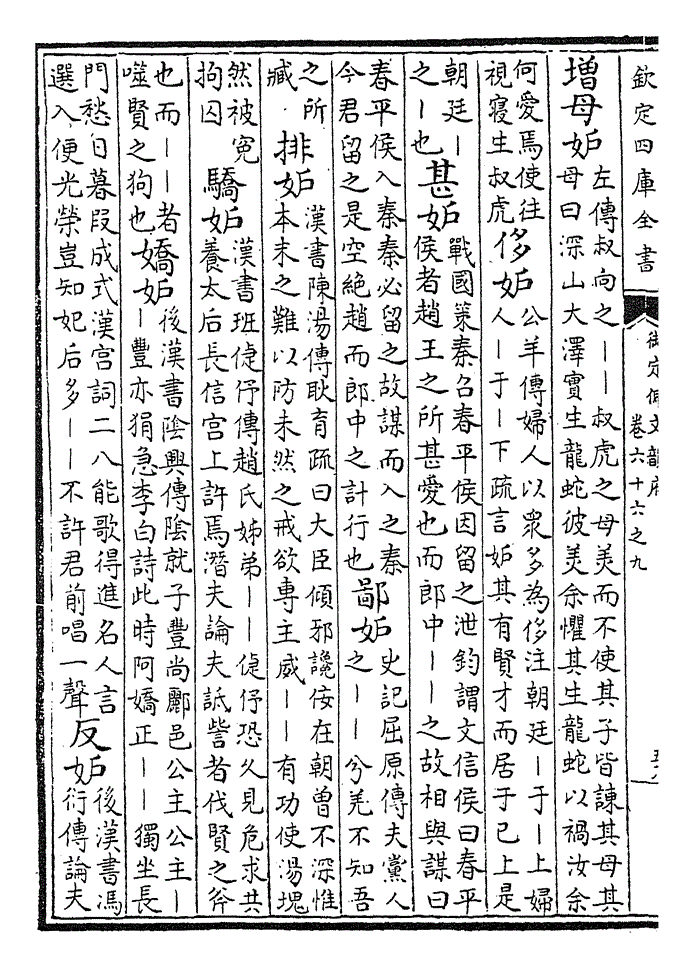 欽定四庫全書
御定佩文韻府
卷六十六之九
增母妬
左傳叔向之丨丨叔虎之母羙而不使其子皆諫其母其
母曰深山大澤實生龍蛇彼羙余懼其生龍蛇以禍汝余
何愛焉使往
視寢生叔虎
侈妬
公羊傳婦人以衆多為侈注朝廷丨于丨上婦
人丨于丨下疏言妬其有賢才而居于己上是
朝廷丨
之丨也
甚妬
戰國䇿秦召春平侯因留之泄鈞謂文信侯曰春平
侯者趙王之所甚愛也而郎中丨丨之故相與謀曰
春平侯入秦秦必留之故謀而入之秦
今君留之是空絶趙而郎中之計行也
鄙妬
史記屈原傳夫黨人
之丨丨兮羌不知吾
之所
臧
排妬
漢書陳湯傳耿育疏曰大臣傾邪讒佞在朝曾不深惟
本末之難以防未然之戒欲專主威丨丨有功使湯塊
然被寃
拘囚
驕妬
漢書班倢伃傳趙氏姊弟丨丨倢伃恐久見危求共
養太后長信宫上許焉潛夫論夫詆訾者伐賢之斧
也而丨丨者
噬賢之狗也
嬌妬
後漢書陰興傳陰就子豐尚酈邑公主公主丨
丨豐亦狷急李白詩此時阿嬌正丨丨獨坐長
門愁日暮段成式漢宫詞二八能歌得進名人言
選入便光榮豈知妃后多丨丨不許君前唱一聲
反妬
後漢書馮
衍傳論夫